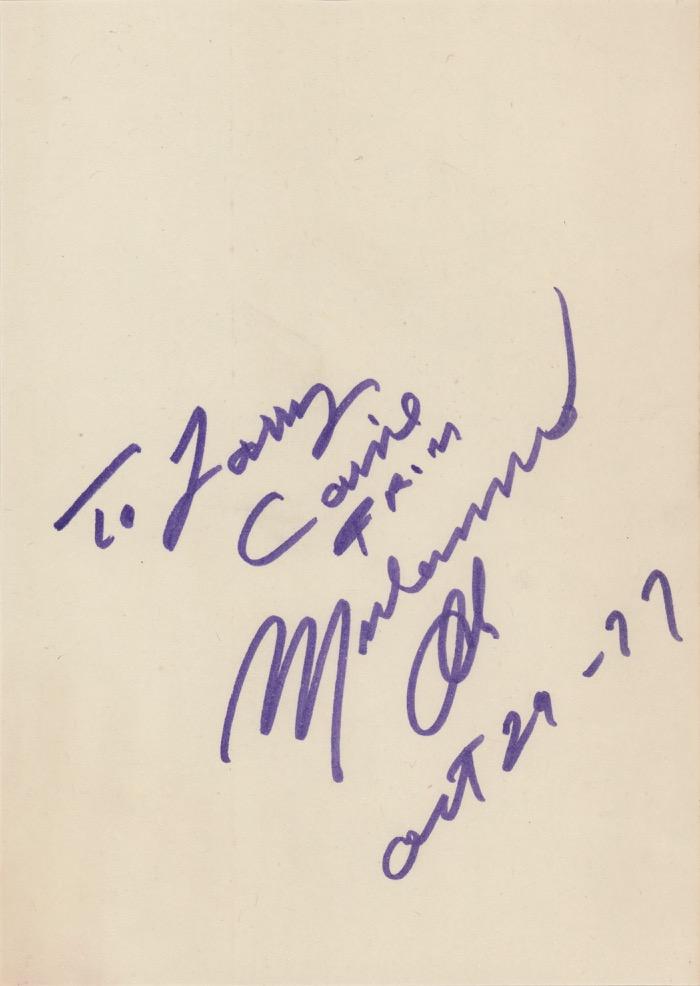 To Larry
Caine
From
Muhammad
Ali
oct 29 - 77